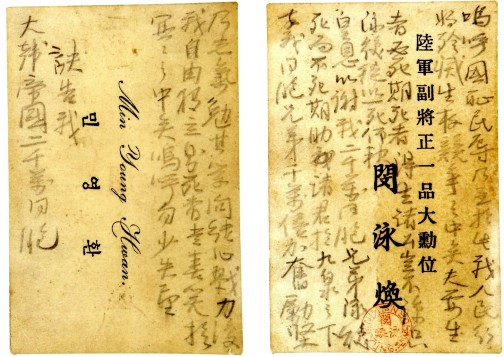 嗚呼國恥民辱乃至於此我人民行
將殄滅生存競爭之中矣夫要生
者必死期死者得生諸公豈不諒只
泳煥徒以一死仰報
皇恩以謝我二千萬同胞兄弟泳煥
死而不死期助諸君於九泉之下
幸我同胞兄弟千萬億加奮勵堅
陸軍副將正一品大勳位
閔泳煥
乃志氣勉其學問結心戮力復
我自由獨立則死者當喜笑於
冥々之中矣嗚呼勿少失望
訣告我
大韓帝國二千萬同胞
Min Young Hwan.
민영환